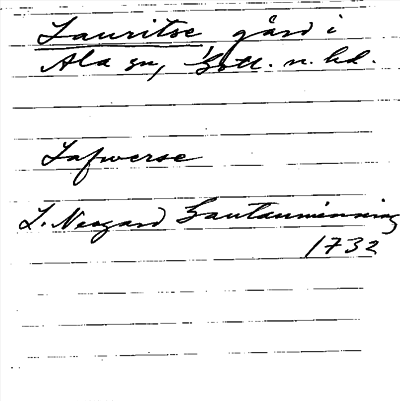 Lauritse gård i
Ala sn, Gotl. n. hd.
Lafwerse
L. Neogard Gautauminning
1732